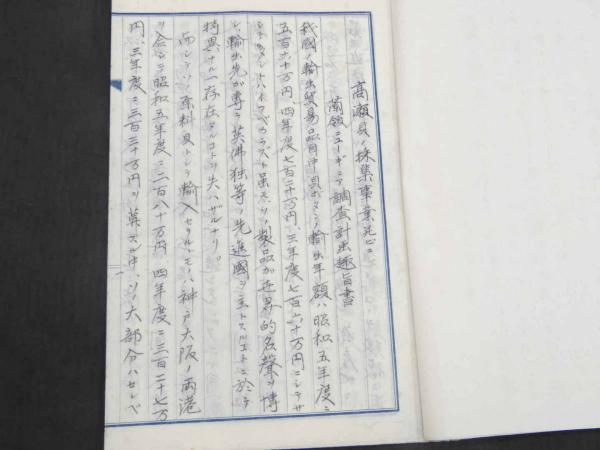 高瀬貝ノ採集事業並ニ
蘭領ニューギニア調査計画趣旨書
我國ノ輸出貿易品目中貝ボタンノ輸出年額ハ昭和五年度ニ
五百六十万円、四年度七百二十万円、三年度七百六十万円ニシテサ
シテ大ナリト ハ云フベカラズト雖モ、ソノ製品ガ世界的名聲ヲ博
シ、輸出先ガ専ラ英佛独等ノ先進國ヲ主トスル点ニ於テ
特異ナル一存在タルコトヲ失ハザルナリ。
而シテソノ原料貝トシテ輸入セラルヽモノハ神戸大阪ノ両港
ヲ合シテ昭和五年度ニ二百八十万円、四年度ニ三百二十七万
円、三年度ニ三百三十万円ヲ算スル中、ソノ大部分ハセレベ